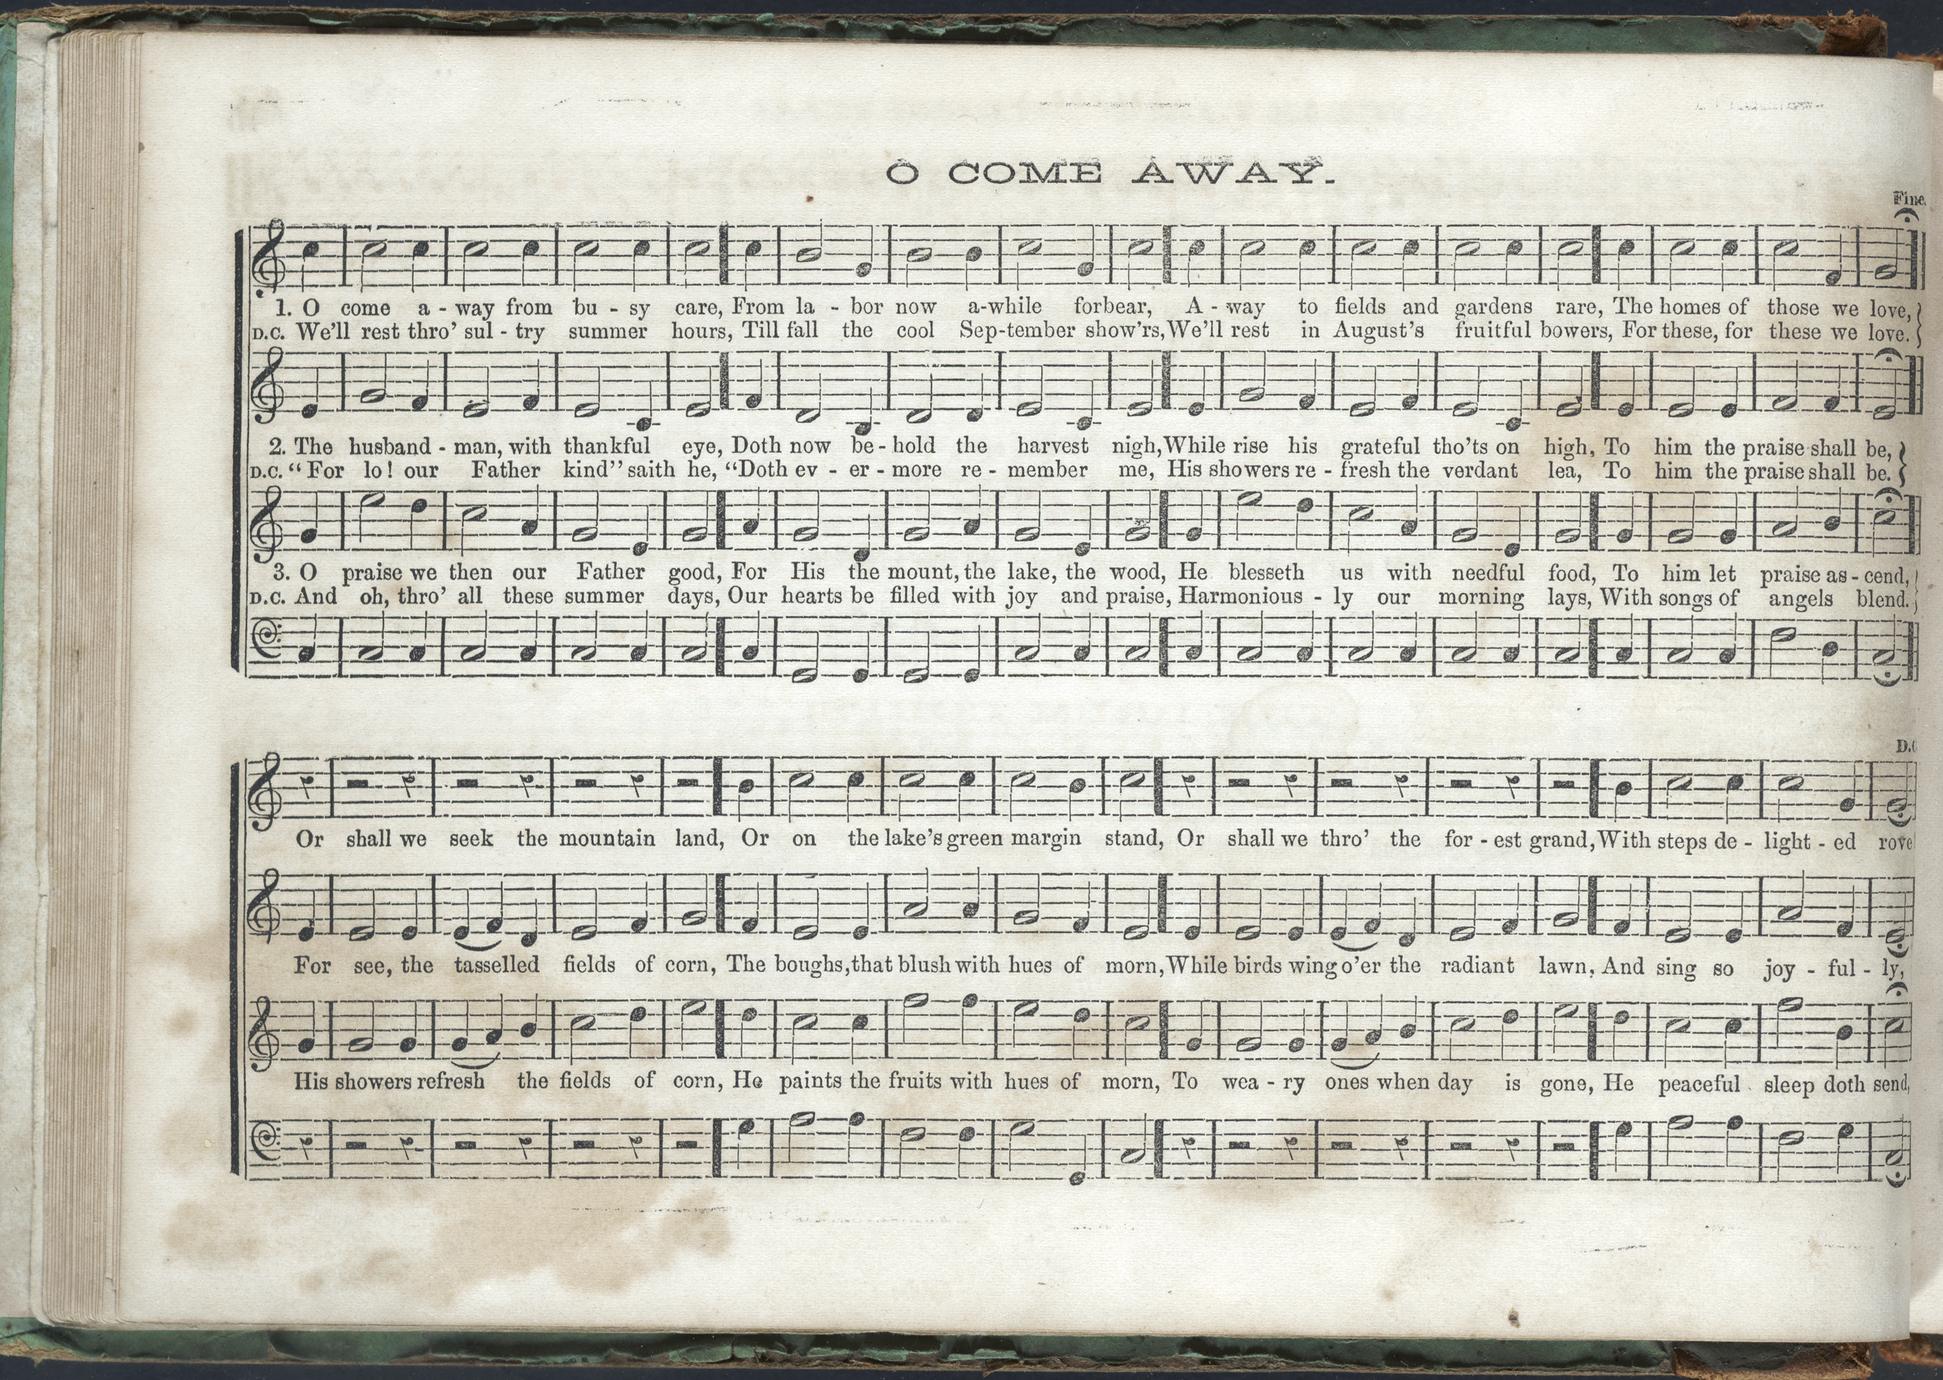 O COME AWAY.
Fine.
1. O come a - way from bu - sy care, From la - bor now a-while forbear, A - way to fields and gardens rare, The homes of those we love,
D.C. We'll rest thro' sul - try summer hours, Till fall the cool Sep-tember show'rs, We'll rest in August's fruitful bowers, For these, for these we love.
2. The husband - man, with thankful eye, Doth now be - hold the harvest nigh, While rise his grateful tho'ts on high, To him the praise shall be,
D.C. “For lo! our Father kind” saith he, “Doth ev - er - more re - member me, His showers re - fresh the verdant lea, To him the praise shall be.
3. O praise we then our Father good, For His the mount, the lake, the wood, He blesseth us with needful food, To him let praise as - cend,
D.C. And oh, thro' all these summer days, Our hearts be filled with joy and praise, Harmonious - ly our morning lays, With songs of angels blend.
D.C
Or shall we seek the mountain land, Or on the lake's green margin stand, Or shall we thro' the for - est grand, With steps de - light - ed rove
For see, the tasselled fields of corn, The boughs, that blush with hues of morn, While birds wing o'er the radiant lawn, And sing so joy - ful - ly,
His showers refresh the fields of corn, He paints the fruits with hues of morn, To wea - ry ones when day is gone, He peaceful sleep doth send,